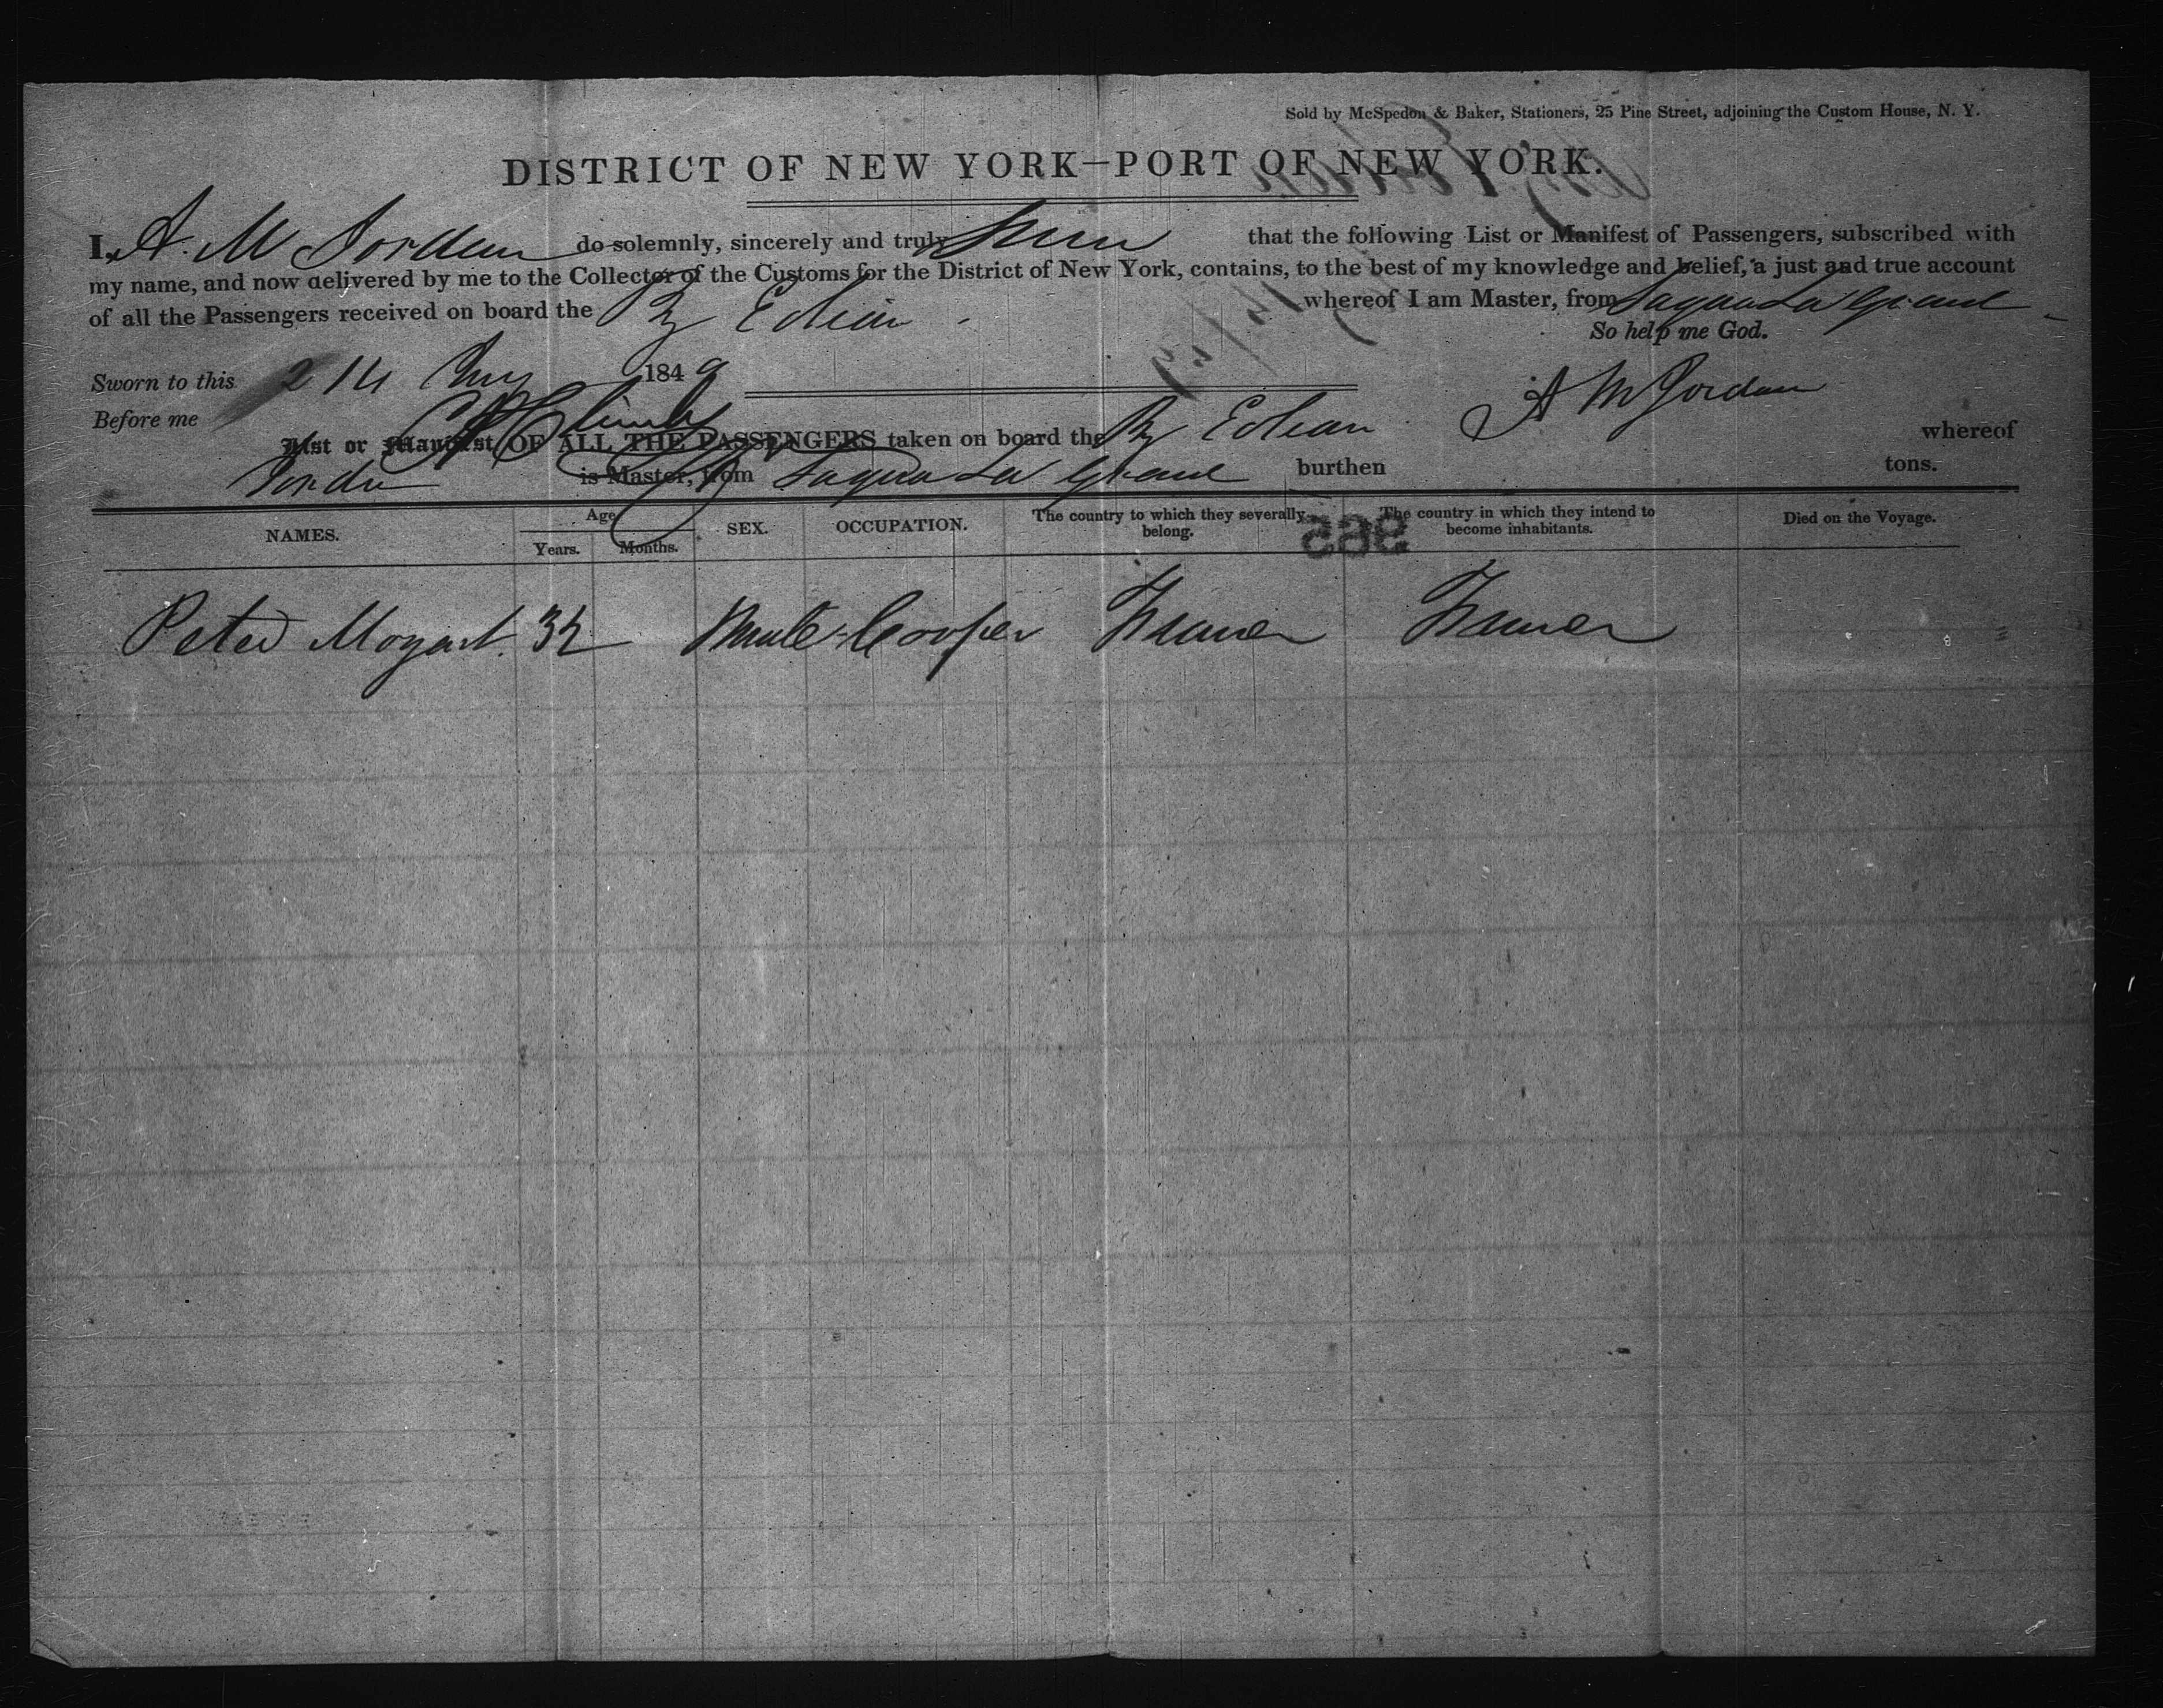 Sold by McSpedon & Baker, Stationers, 25 Pine Street, adjoining the Custom House, N. Y.
DISTRICT OF NEW YORK—PORT OF NEW YORK.
I, A. M Jordan do solemnly, sincerely and truly that the following List or Manifest of Passengers, subscribed with
my name, and now delivered by me to the Collector of the Customs for the District of New York, contains, to the best of my knowledge and belief, a just and true account
of all the Passengers received on board the whereof I am Master, from Sagua La Grand
So help me God.
Sworn to this 1849
Before me
A M Jordan
List or Manifest OF ALL THE PASSENGERS taken on board the whereof
Jordan is Master, from Sagua La Grand burthen tons.
NAMES. Age Years. Months. SEX. OCCUPATION. The country to which they severally belong. The country in which they intend to become inhabitants. Died on the Voyage.
595
Peter Mozart. 32 Male Cooper France France